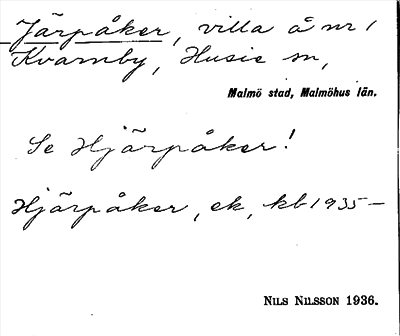 Järpåker, villa å nr 1
Kvarnby, Husie sn,
Malmö stad, Malmöhus län.
Se Hjärpåker!
Hjärpåker, ek, kb 1935—
NILS NILSSON 1936.